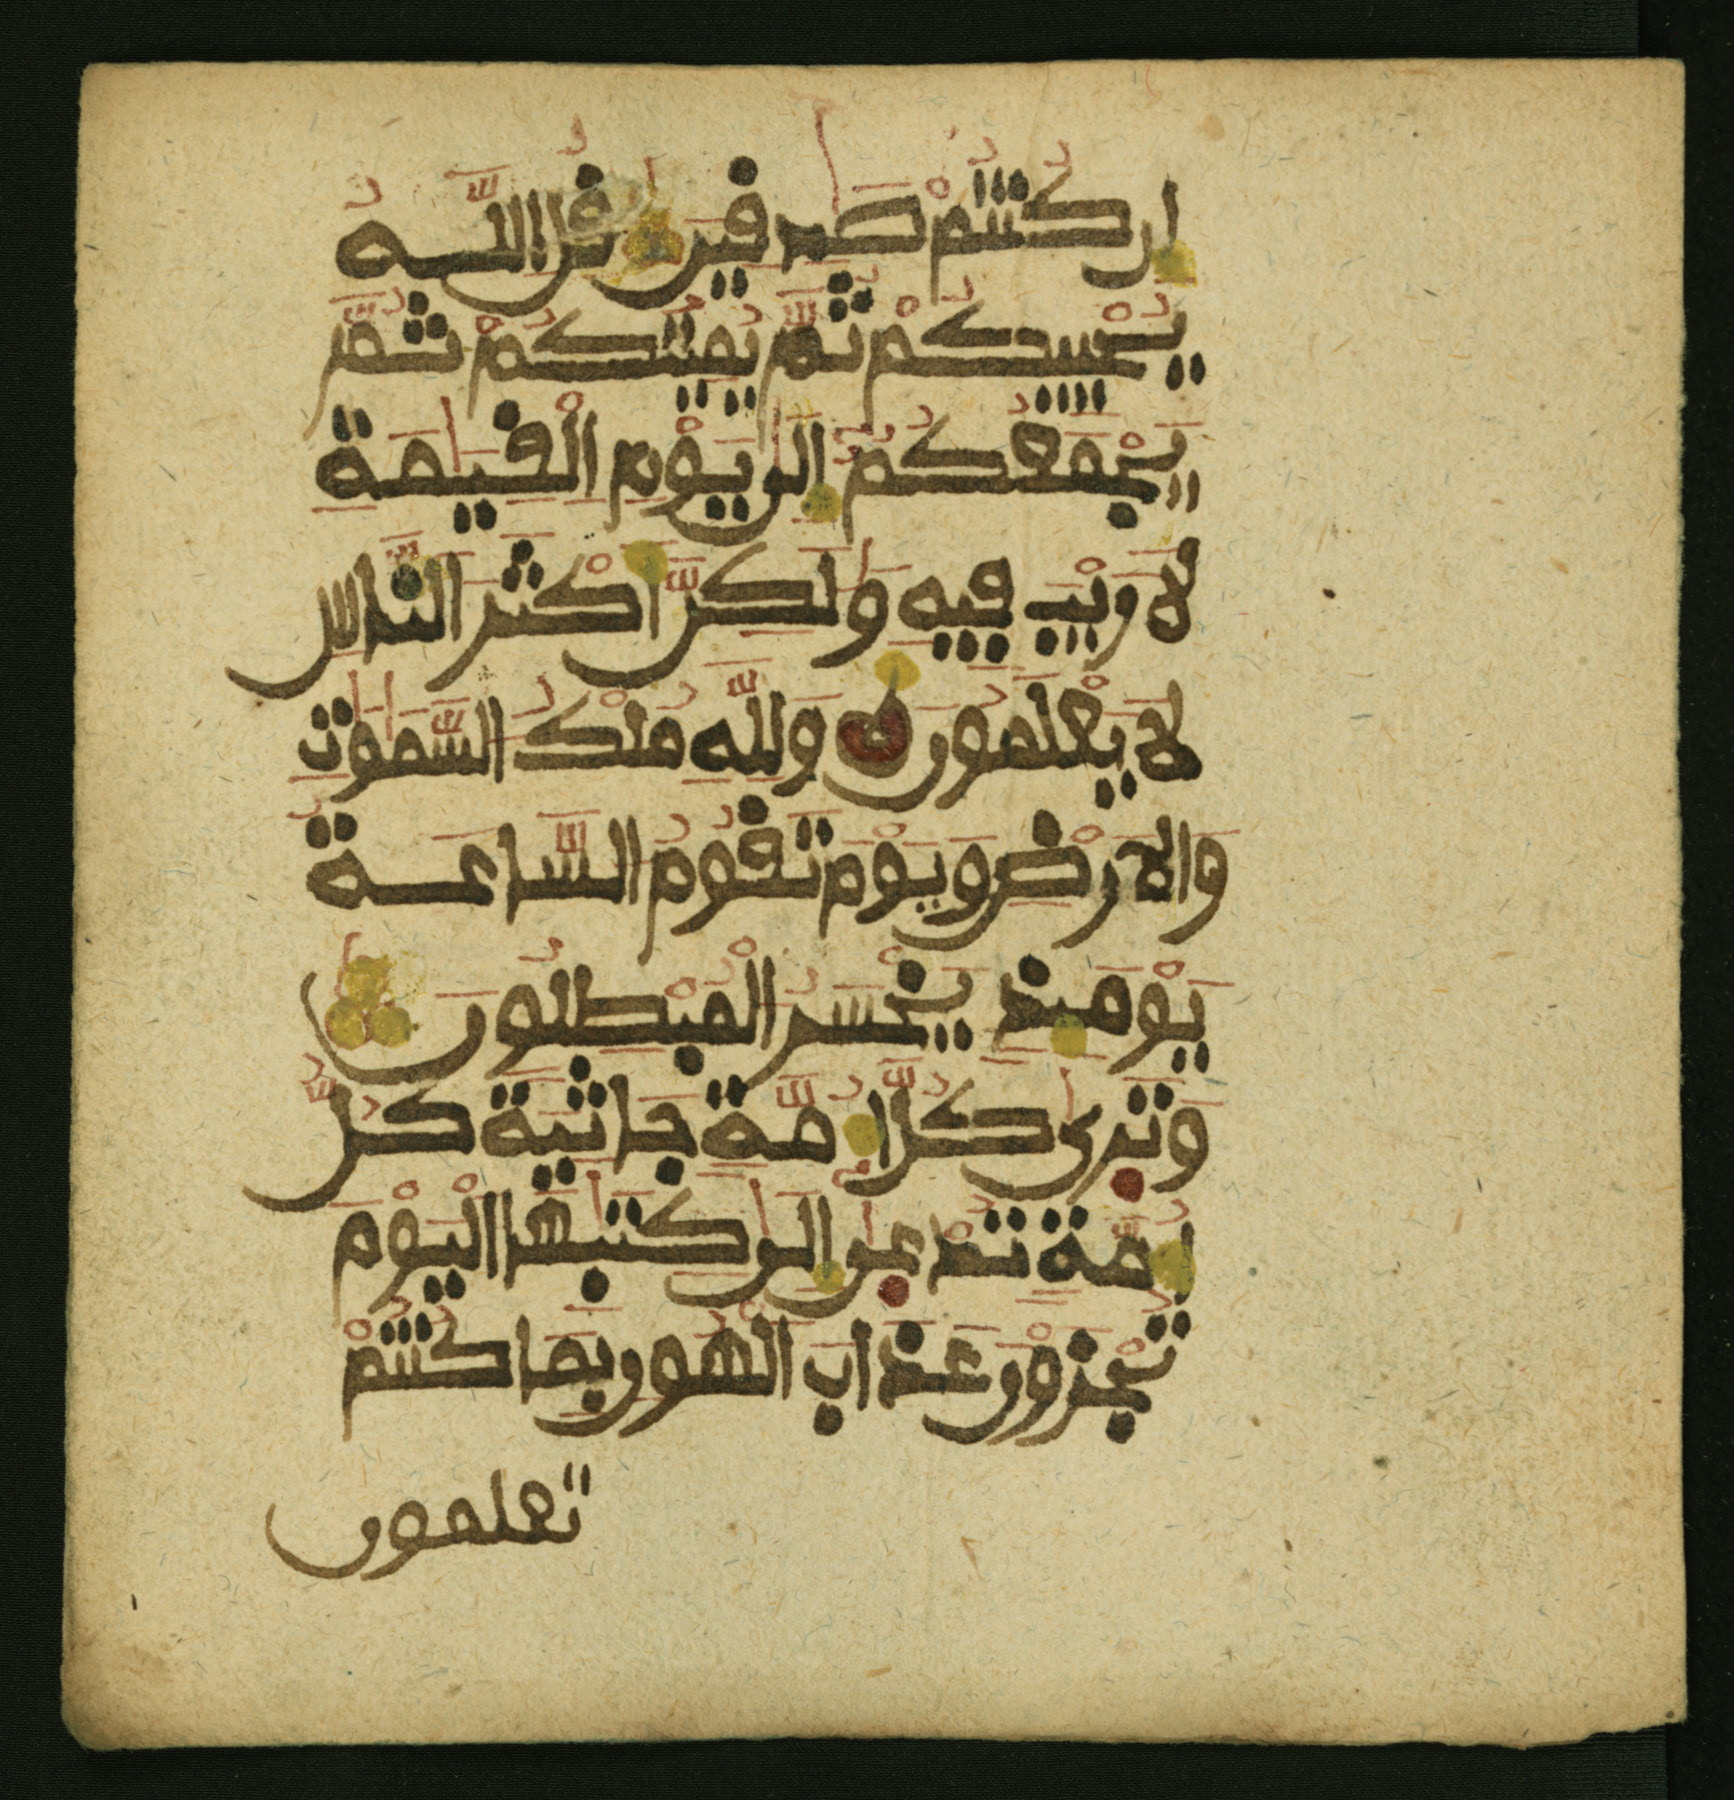 إِن كُنتُمْ صَٰدِقِينَ قُلِ اللَّهُ
يُحْيِيكُمْ ثُمَّ يُمِيتُكُمْ ثُمَّ
يَجْمَعُكُمْ إِلَىٰ يَوْمِ الْقِيَٰمَةِ
لَا رَيْبَ فِيهِ وَلَٰكِنَّ أَكْثَرَ النَّاسِ
لَا يَعْلَمُونَ وَلِلَّهِ مُلْكُ السَّمَٰوَٰتِ
وَالَارْضِ وَيَوْمَ تَقُومُ السَّاعَةُ
يَوْمَئِذٍ يَخْسَرُ الْمُبْطِلُونَ
وَتَرَىٰ كُلَّ أُمَّةٍ جَاثِيَةً كُلُّ
أُمَّةٍ تُدْعَىٰ إِلَىٰ كِتَٰبِهَا الْيَوْمَ
تُجْزَوْنَ عَذَابَ الْهُونِ بِمَا كُنتُمْ
تعلمون